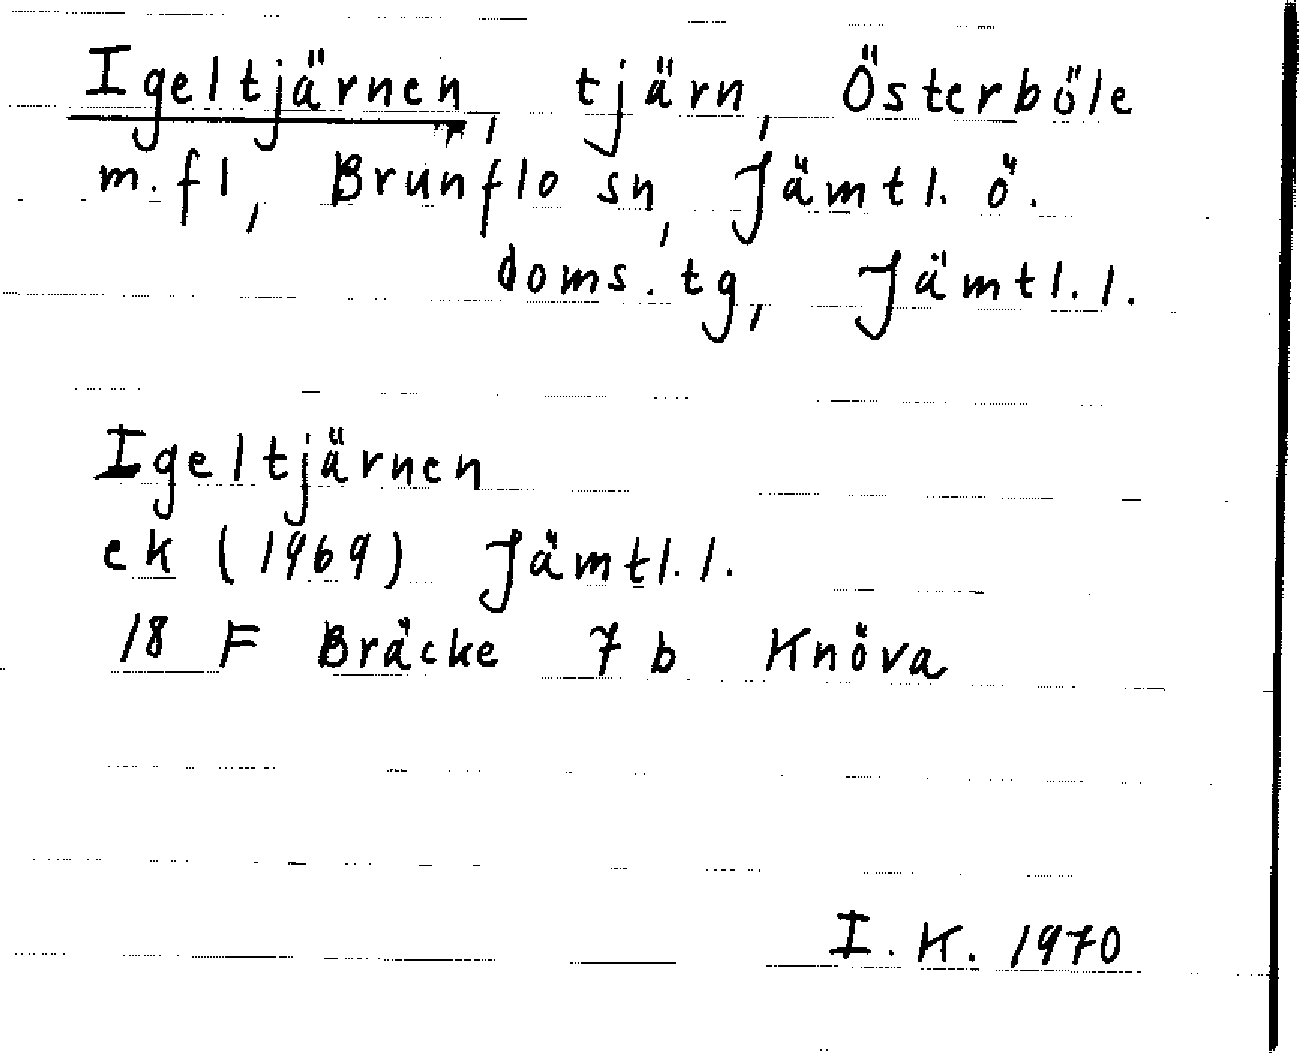 Igeltjärnen, tjärn, Österböle
m. fl, Brunflo sn, Jämtl. ö.
doms. tg, Jämtl. l.
Igeltjärnen
ek (1969) Jämtl. l.
18 F Bräcke 7 b Knöva
I. K. 1970